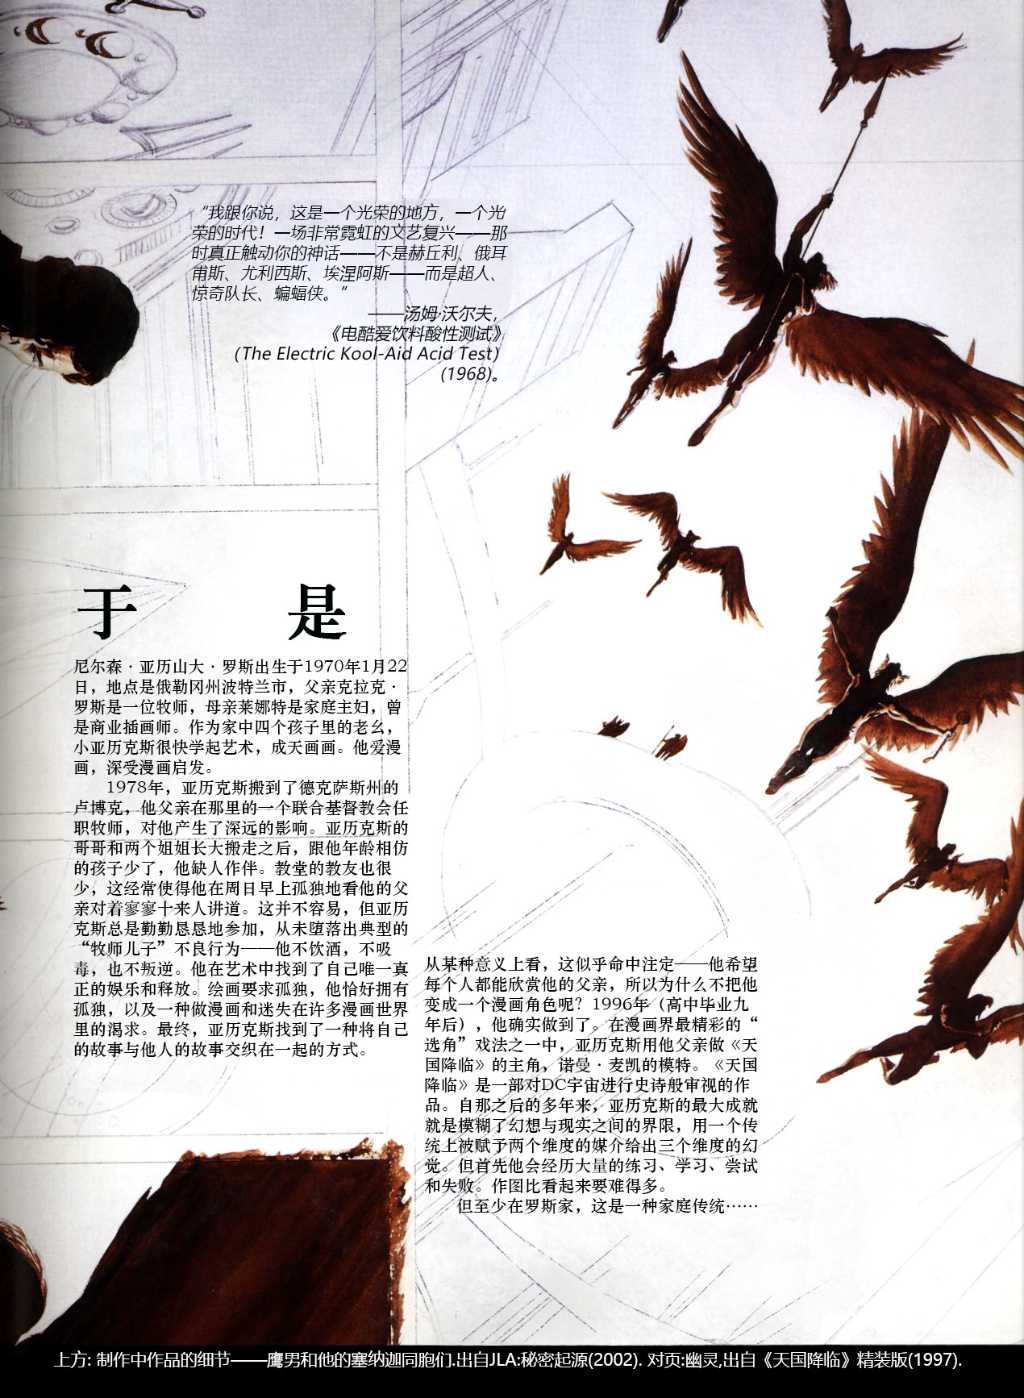 “我跟你说，这是一个光荣的地方，一个光
荣的时代！一场非常霓虹的文艺复兴——那
时真正触动你的神话——不是赫丘利、俄耳
甫斯、尤利西斯、埃涅阿斯——而是超人、
惊奇队长、蝙蝠侠。“
——汤姆·沃尔夫，
《电酷爱饮料酸性测试》
(The Electric Kool-Aid Acid Test)
(1968)。
于 是
尼尔森·亚历山大·罗斯出生于1970年1月22
日，地点是俄勒冈州波特兰市，父亲克拉克·
罗斯是一位牧师，母亲莱娜特是家庭主妇，曾
是商业插画师。作为家中四个孩子里的老幺，
小亚历克斯很快学起艺术，成天画画。他爱漫
画，深受漫画启发。
1978年，亚历克斯搬到了德克萨斯州的
卢博克，他父亲在那里的一个联合基督教会任
职牧师，对他产生了深远的影响。亚历克斯的
哥哥和两个姐姐长大搬走之后，跟他年龄相仿
的孩子少了，他缺人作伴。教堂的教友也很
少，这经常使得他在周日早上孤独地看他的父
亲对着寥寥十来人讲道。这并不容易，但亚历
克斯总是勤勤恳恳地参加，从未堕落出典型的
“牧师儿子”不良行为——他不饮酒，不吸
毒，也不叛逆。他在艺术中找到了自己唯一真
正的娱乐和释放。绘画要求孤独，他恰好拥有
孤独，以及一种做漫画和迷失在许多漫画世界
里的渴求。最终，亚历克斯找到了一种将自己
的故事与他人的故事交织在一起的方式。
从某种意义上看，这似乎命中注定——他希望
每个人都能欣赏他的父亲，所以为什么不把他
变成一个漫画角色呢？1996年（高中毕业九
年后），他确实做到了。在漫画界最精彩的“
选角”戏法之一中，亚历克斯用他父亲做《天
国降临》的主角，诺曼·麦凯的模特。《天国
降临》是一部对DC宇宙进行史诗般审视的作
品。自那之后的多年来，亚历克斯的最大成就
就是模糊了幻想与现实之间的界限，用一个传
统上被赋予两个维度的媒介给出三个维度的幻
觉。但首先他会经历大量的练习、学习、尝试
和失败。作图比看起来要难得多。
但至少在罗斯家，这是一种家庭传统……
上方: 制作中作品的细节——鹰男和他的塞纳迦同胞们.出自JLA:秘密起源(2002). 对页:幽灵,出自《天国降临》精装版(1997).